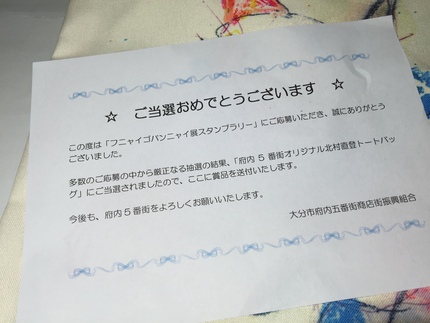 ☆ ご当選おめでとうございます ☆
この度は「フニャイゴバンニャイ展スタンプラリー」にご応募いただき、誠にありがとう
ございました。
多数のご応募の中から厳正なる抽選の結果、「府内 5 番街オリジナル北村直登トートバッ
グ」にご当選されましたので、ここに賞品を送付いたします。
今後も、府内 5 番街をよろしくお願いいたします。
大分市府内五番街商店街振興組合